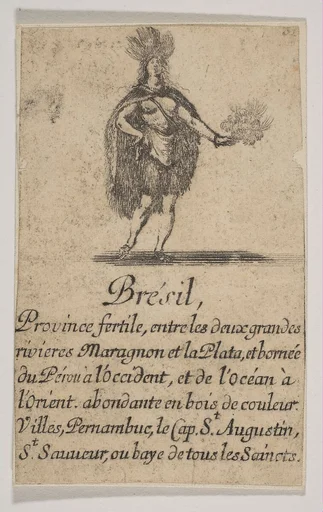 Brésil,
Province fertile, entre les deux grandes
rivieres Maragnon et la Plata, et bornée
du Pérou à l'Occident, et de l'océan à
l'Orient. abondante en bois de couleur.
Villes, Pernambuc, le Cap. S.t Augustin,
S.t Sauveur, ou baye de tous les Saincts.